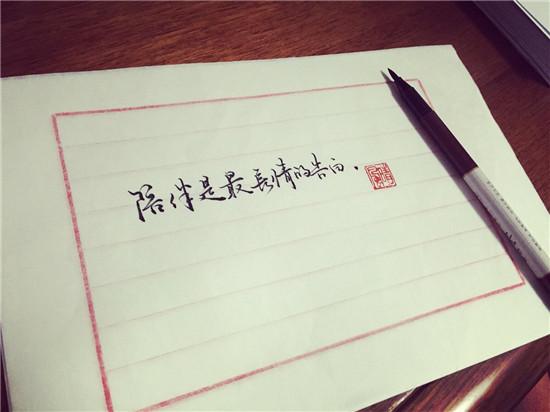 陪伴是最長情的告白。